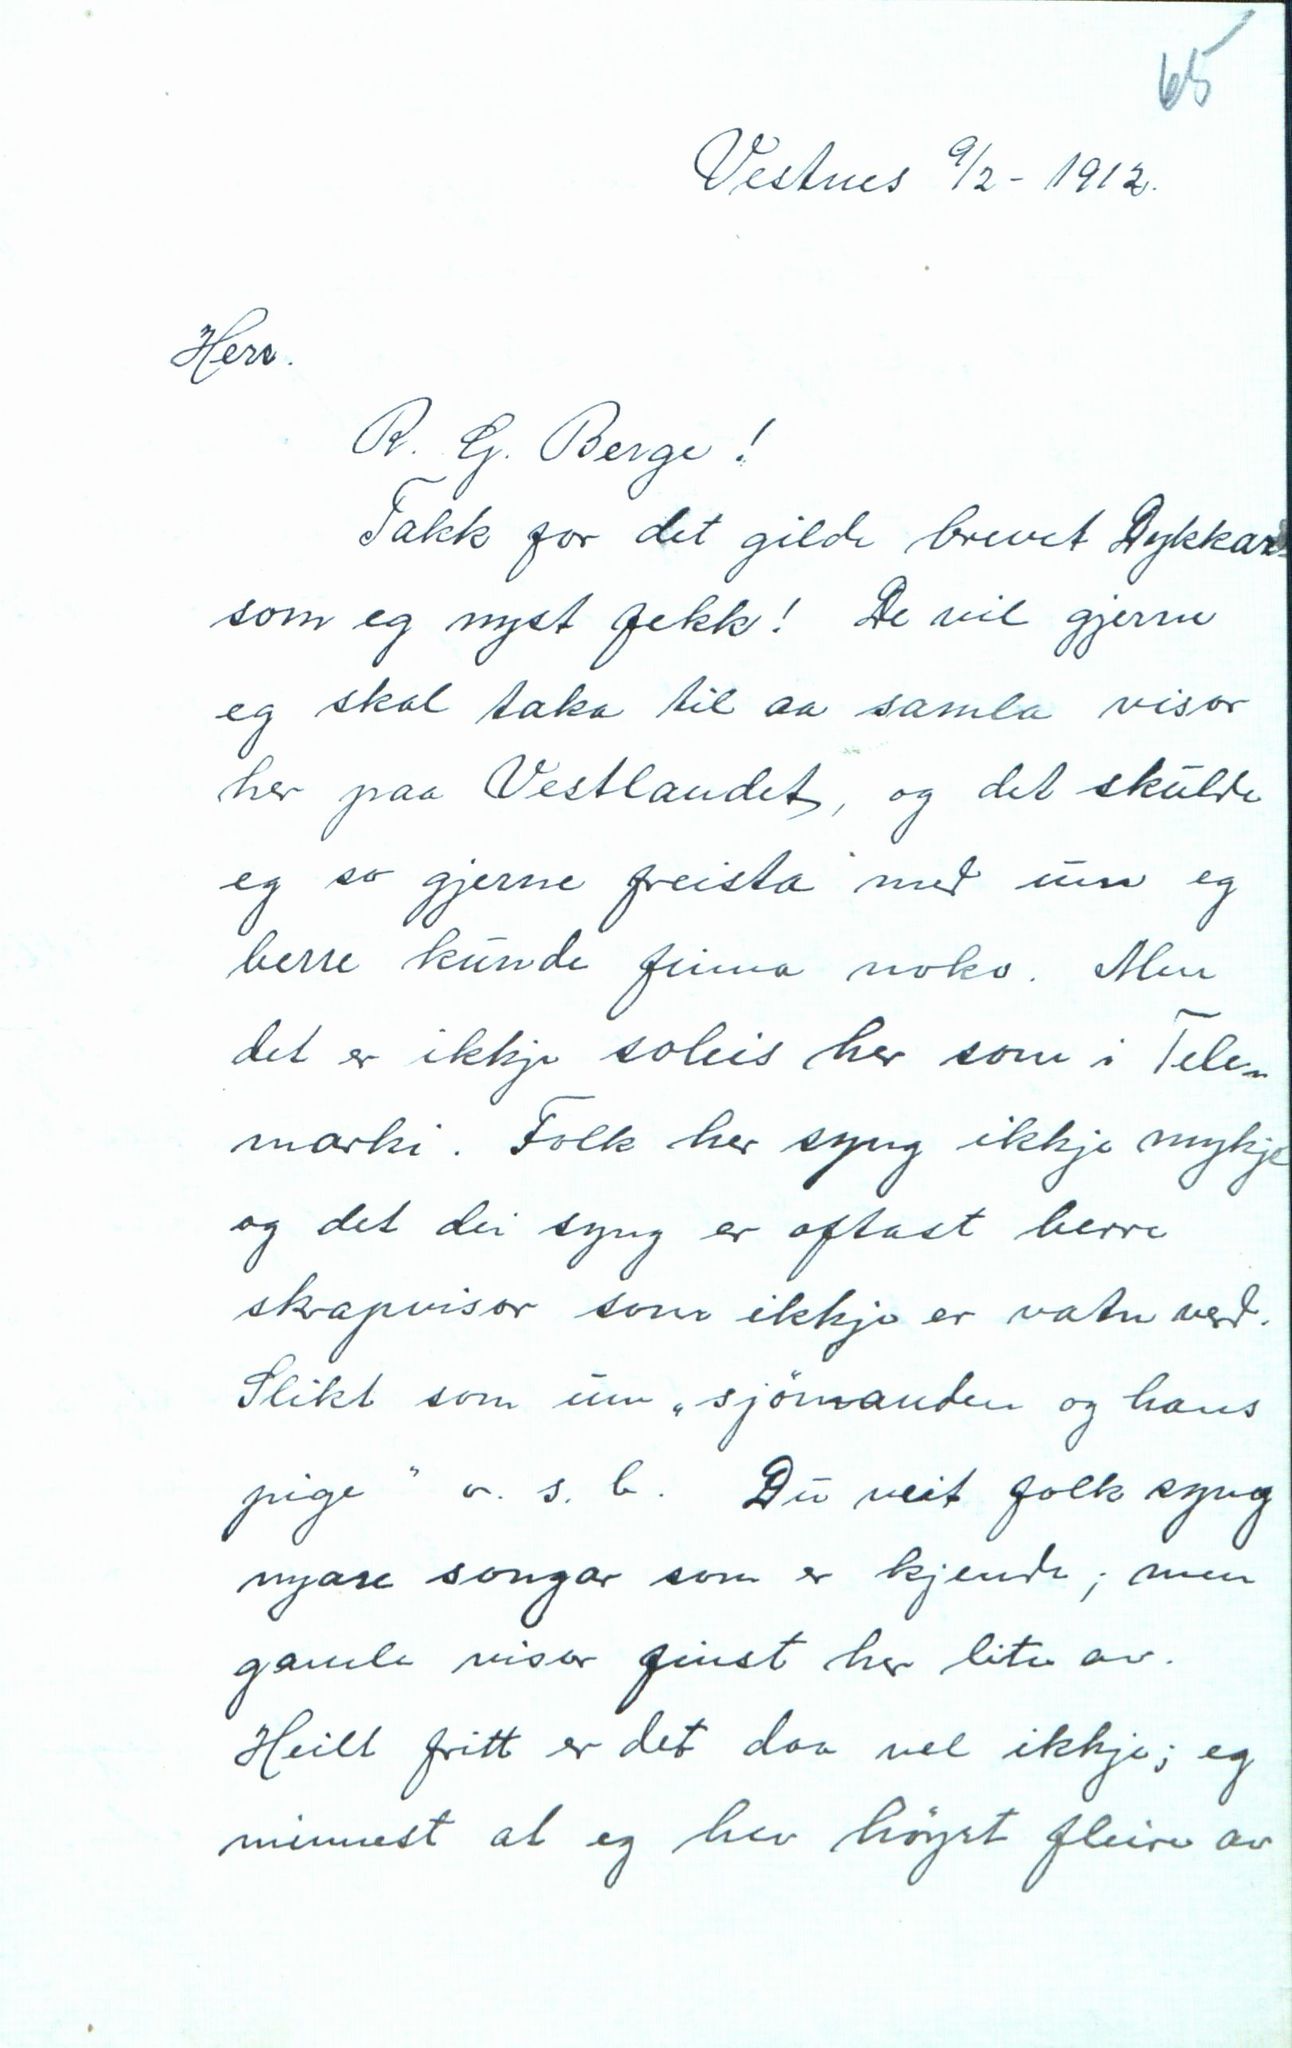 65
Vestnes 9/2 - 1912.
Herr.
R. G. Berge!
Takk for det gilde brevet Dykkar
som eg nyst fekk! De vil gjerne
eg skal taka til aa samla visor
her paa Vestlandet, og det skulde
eg so gjerne freista med um eg
berre kunde finna noko. Men
det er ikkje soleis her som i Tele-
marki. Folk her syng ikkje mykje
og det dei syng er oftast berre
skrapvisor som ikkje er vatn verd.
Slikt som um „sjömanden og hans
pige" o. s. b. Du veit folk syng
nyare songar som er kjende; men
gamle visor finst her lite av.
Heilt fritt er det daa vel ikkje; eg
minnest at eg hev höyrt fleire av